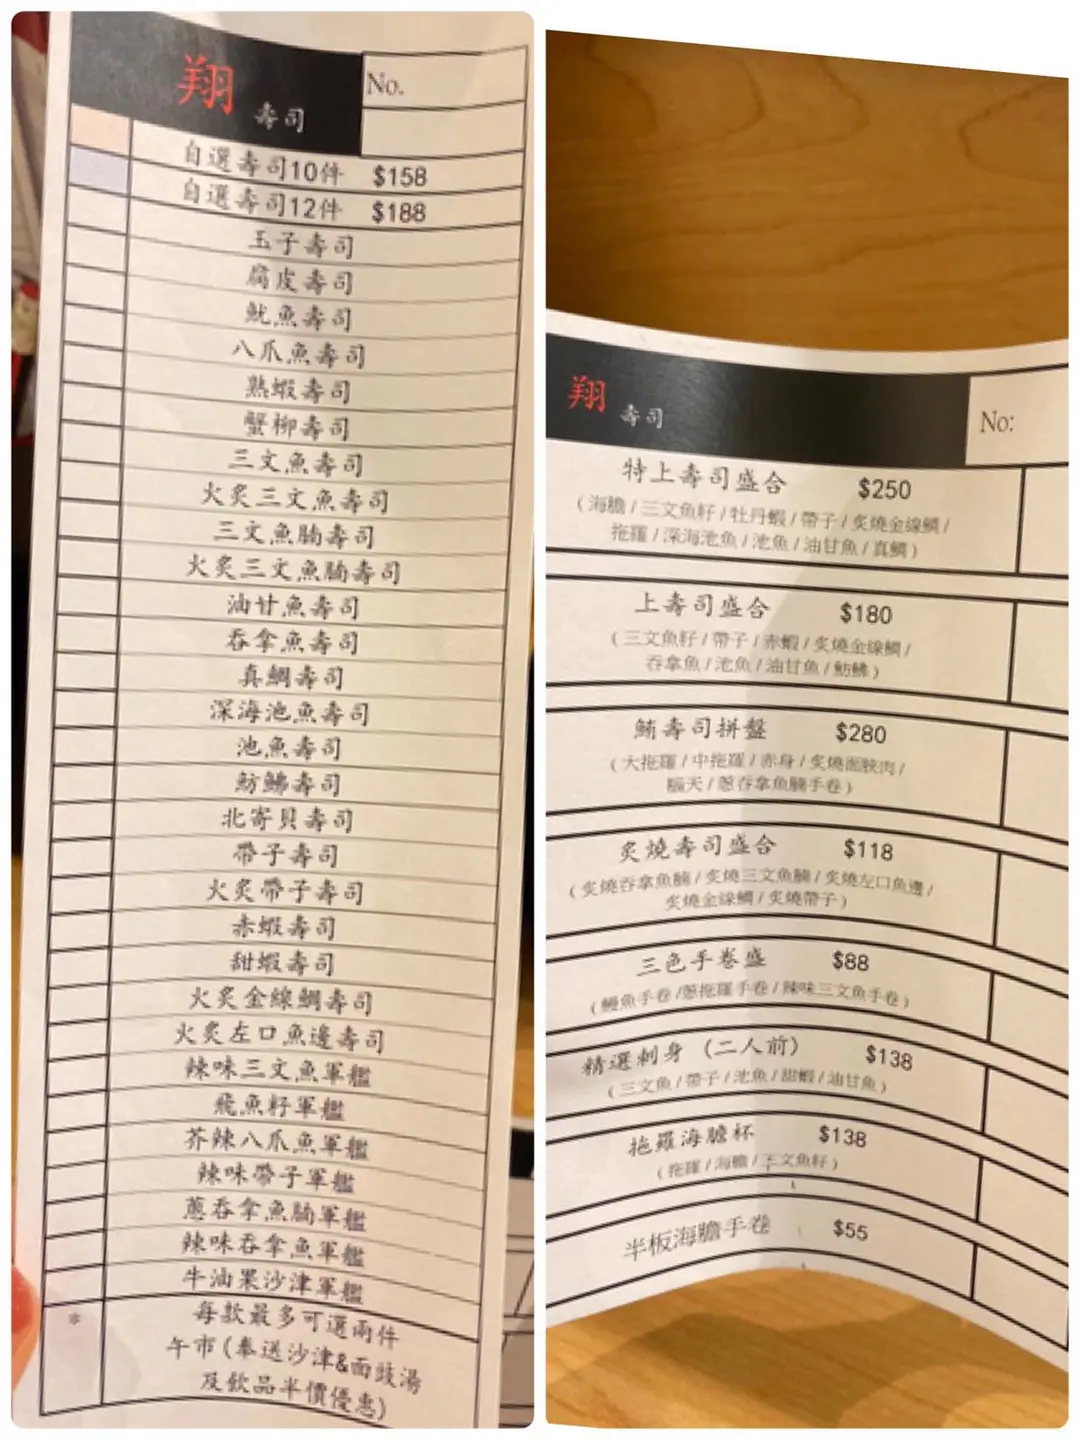 翔
壽司
No.
自選壽司10件 $158
自選壽司12件 $188
玉子壽司
腐皮壽司
魷魚壽司
八爪魚壽司
熟蝦壽司
蟹柳壽司
三文魚壽司
火炙三文魚壽司
三文魚腩壽司
火炙三文魚腩壽司
油甘魚壽司
吞拿魚壽司
真鯛壽司
深海池魚壽司
池魚壽司
魴鮄壽司
北寄貝壽司
帶子壽司
火炙帶子壽司
赤蝦壽司
甜蝦壽司
火炙金線鯛壽司
火炙左口魚邊壽司
辣味三文魚軍艦
飛魚籽軍艦
芥辣八爪魚軍艦
辣味帶子軍艦
蔥吞拿魚腩軍艦
辣味吞拿魚軍艦
牛油果沙津軍艦
* 每款最多可選兩件
午市(奉送沙津&面豉湯
及飲品半價優惠)
翔
壽司
No:
特上壽司盛合 $250
(海膽/三文魚籽/牡丹蝦/帶子/炙燒金線鯛/
拖羅/深海池魚/池魚/油甘魚/真鯛)
上壽司盛合 $180
(三文魚籽/帶子/赤蝦/炙燒金線鯛/
吞拿魚/池魚/油甘魚/魴鮄)
鮪壽司拼盤 $280
(大拖羅/中拖羅/赤身/炙燒面頰肉/
腦天/蔥吞拿魚腩手卷)
炙燒壽司盛合 $118
(炙燒吞拿魚腩/炙燒三文魚腩/炙燒左口魚邊/
炙燒金線鯛/炙燒帶子)
三色手卷盛 $88
(鰻魚手卷/蔥拖羅手卷/辣味三文魚手卷)
精選刺身(二人前) $138
(三文魚/帶子/池魚/甜蝦/油甘魚)
拖羅海膽杯 $138
(拖羅/海膽/三文魚籽)
半板海膽手卷 $55